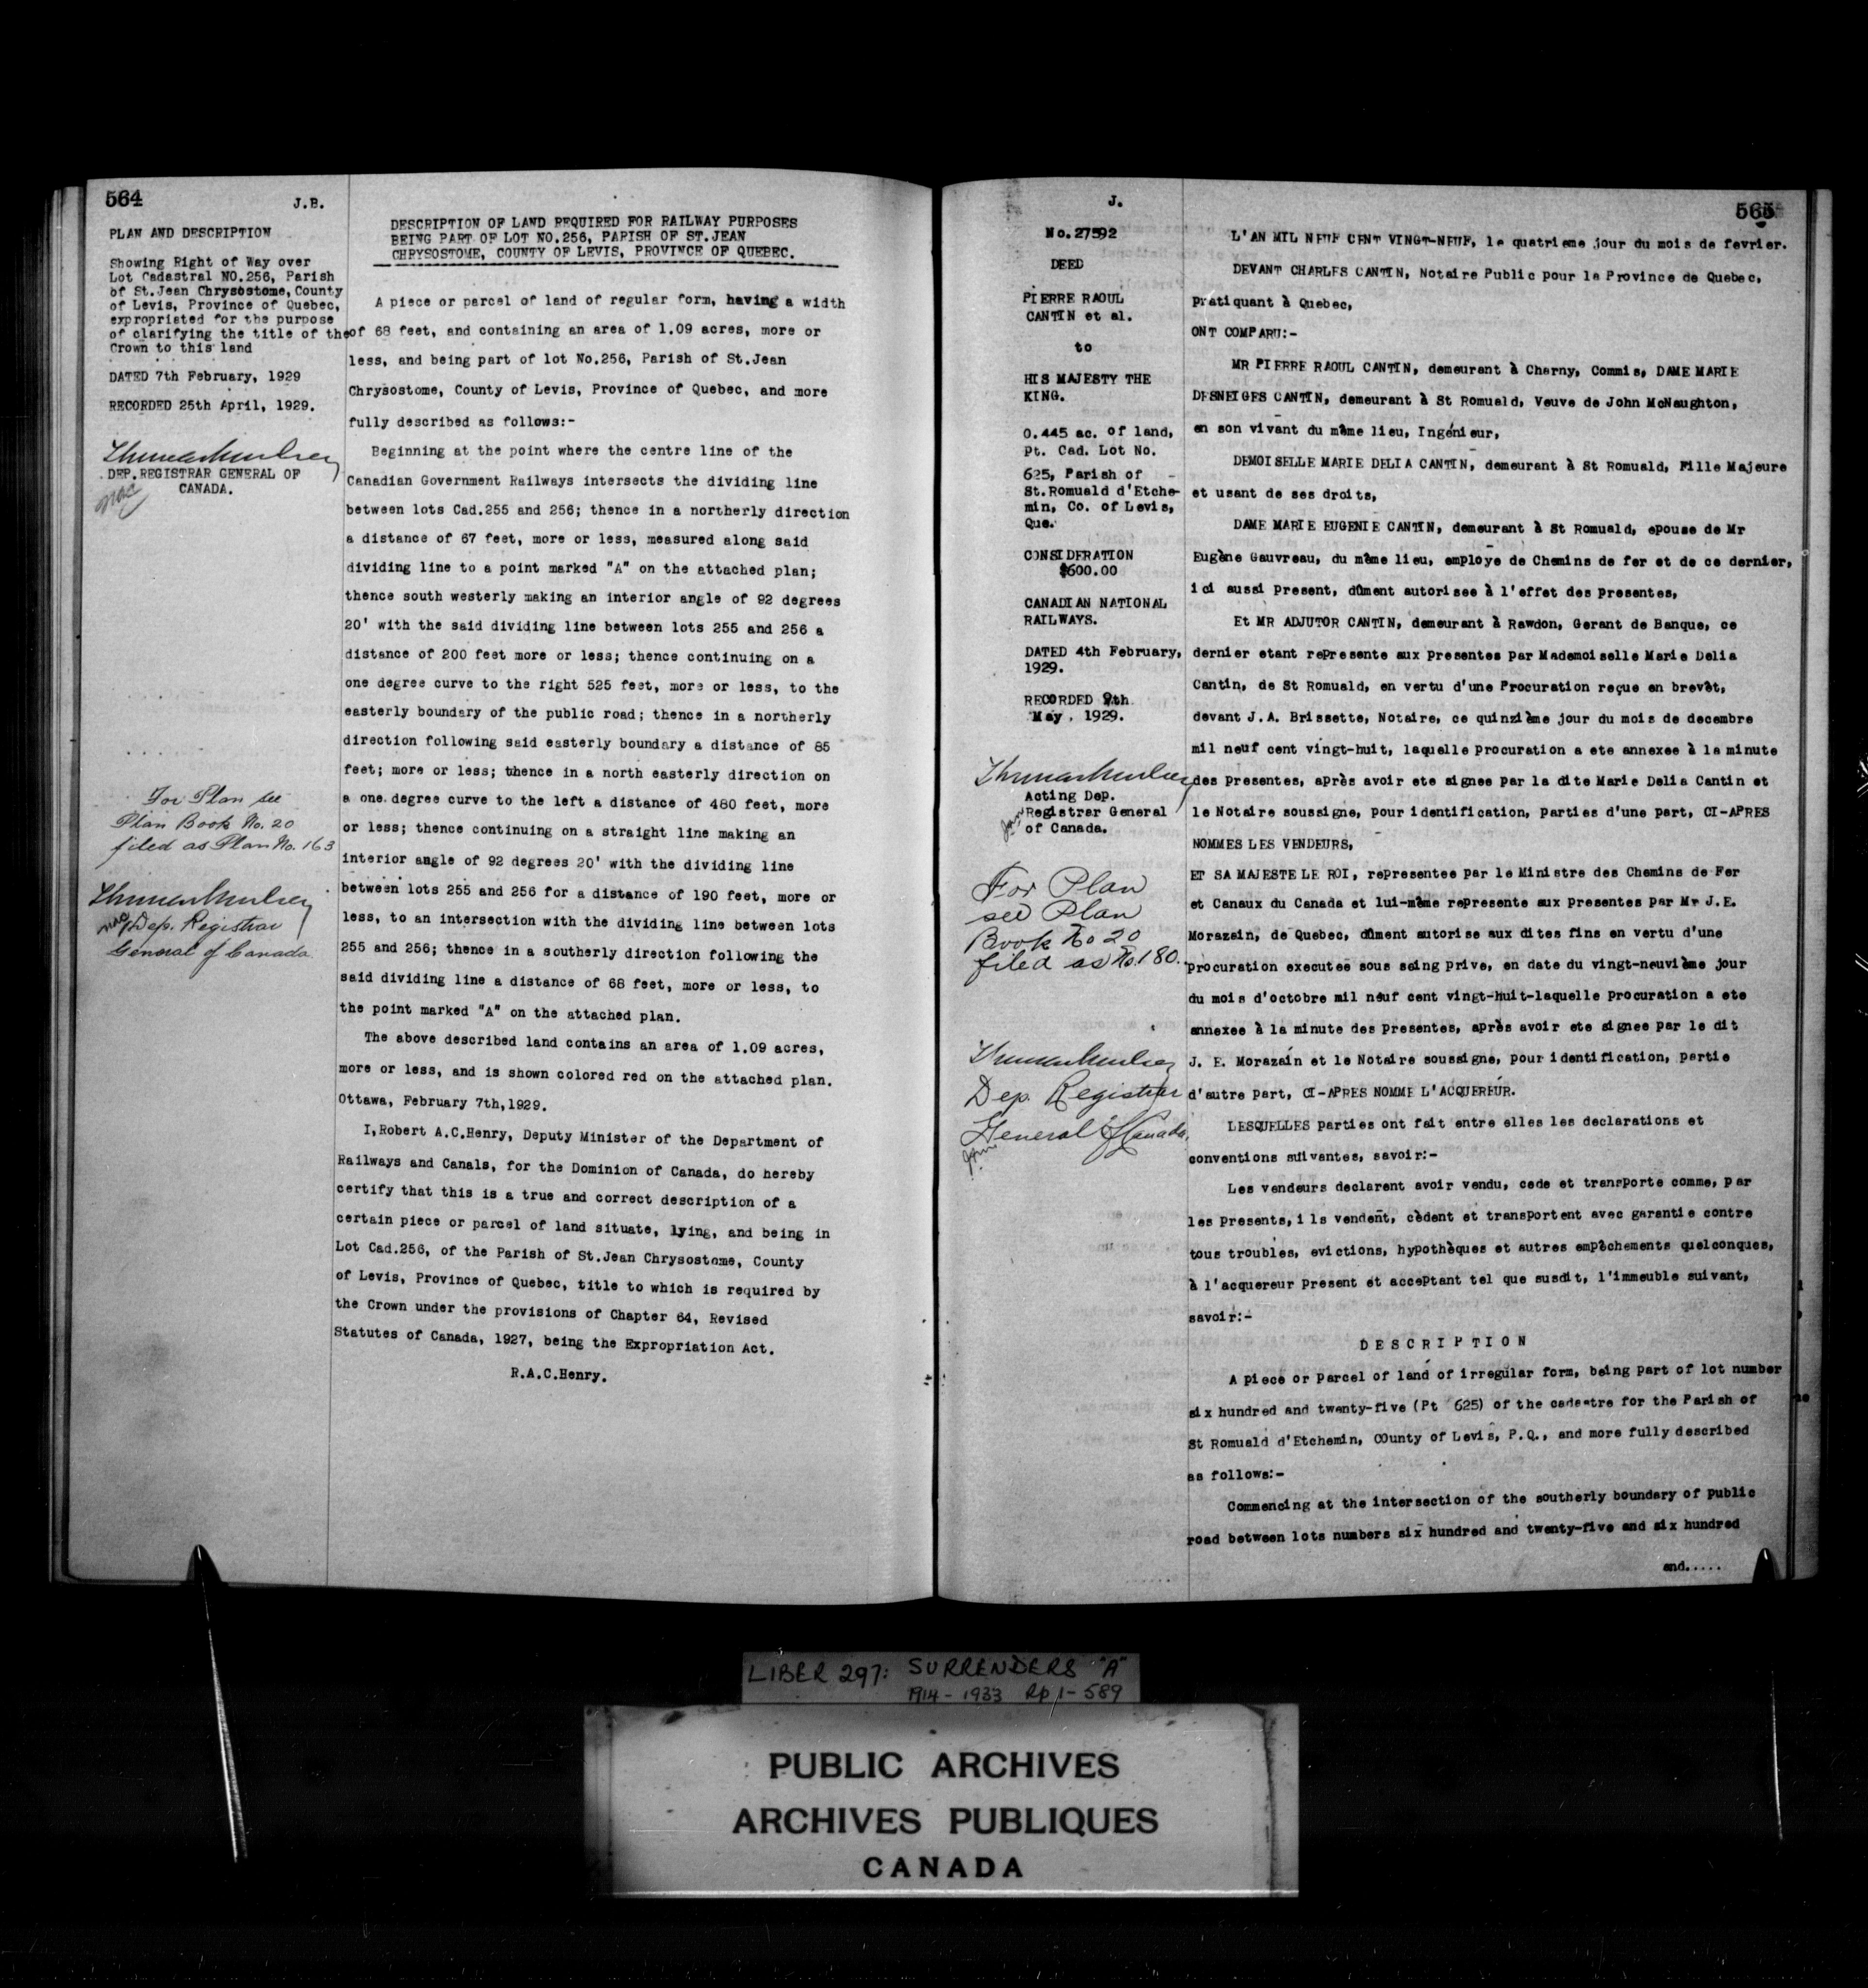 564
J.B.
PLAN AND DESCRIPTION
Showing Right of Way over
Lot Cadastral NO.256, Parish
of St.Jean Chrysostome, County
of Levis, Province of Quebec,
expropriated for the purpose
of clarifying the title of the
Crown to this land
DATED 7th February, 1929
RECORDED 25th April, 1929.
DEP.REGISTRAR GENERAL OF
CANADA.
For Plan see
Plan Book No. 20
filed as Plan No. 163
Dep. Registrar
General of Canada
DESCRIPTION OF LAND REQUIRED FOR RAILWAY PURPOSES
BEING PART OF LOT NO.256, PARISH OF ST.JEAN
CHRYSOSTOME, COUNTY OF LEVIS, PROVINCE OF QUEBEC.
A piece or parcel of land of regular form, having a width
of 68 feet, and containing an area of 1.09 acres, more or
less, and being part of lot No.256, Parish of St.Jean
Chrysostome, County of Levis, Province of Quebec, and more
fully described as follows:-
Beginning at the point where the centre line of the
Canadian Government Railways intersects the dividing line
between lots Cad.255 and 256; thence in a northerly direction
a distance of 67 feet, more or less, measured along said
dividing line to a point marked "A" on the attached plan;
thence south westerly making an interior angle of 92 degrees
20' with the said dividing line between lots 255 and 256 a
distance of 200 feet more or less; thence continuing on a
one degree curve to the right 525 feet, more or less, to the
easterly boundary of the public road; thence in a northerly
direction following said easterly boundary a distance of 85
feet; more or less; thence in a north easterly direction on
a one degree curve to the left a distance of 480 feet, more
or less; thence continuing on a straight line making an
interior angle of 92 degrees 20' with the dividing line
between lots 255 and 256 for a distance of 190 feet, more or
less, to an intersection with the dividing line between lots
255 and 256; thence in a southerly direction following the
said dividing line a distance of 68 feet, more or less, to
the point marked "A" on the attached plan.
The above described land contains an area of 1.09 acres,
more or less, and is shown colored red on the attached plan.
Ottawa, February 7th,1929.
I,Robert A.C.Henry, Deputy Minister of the Department of
Railways and Canals, for the Dominion of Canada, do hereby
certify that this is a true and correct description of a
certain piece or parcel of land situate, lying, and being in
Lot Cad.256, of the Parish of St.Jean Chrysostome, County
of Levis, Province of Quebec, title to which is required by
the Crown under the provisions of Chapter 64, Revised
Statutes of Canada, 1927, being the Expropriation Act.
R.A.C.Henry.
J.
565
No.27592
DEED
PIERRE RAOUL
CANTIN et al.
to
HIS MAJESTY THE
KING.
0.445 ac. of land,
Pt. Cad. Lot No.
625, Parish of
St.Romuald d'Etche-
min, Co. of Levis,
Que.
CONSIDERATION
$600.00
CANADIAN NATIONAL
RAILWAYS.
DATED 4th February,
1929.
RECORDED 9th
May, 1929.
Acting Dep.
Registrar General
of Canada.
For Plan
see Plan
Book No 20
filed as No. 180.
Dep. Registrar
General of Canada.
L'AN MIL NEUF CENT VINGT-NEUF, le quatrieme jour du mois de fevrier.
DEVANT CHARLES CANTIN, Notaire Public pour la Province de Quebec,
Pratiquant à Quebec,
ONT COMPARU:-
MR PIERRE RAOUL CANTIN, demeurant à Charny, Commis, DAME MARIE
DESNEIGES CANTIN, demeurant à St Romuald, Veuve de John McNaughton,
en son vivant du même lieu, Ingénieur,
DEMOISELLE MARIE DELIA CANTIN, demeurant à St Romuald, Fille Majeure
et usant de ses droits,
DAME MARIE EUGENIE CANTIN, demeurant à St Romuald, epouse de Mr
Eugène Gauvreau, du même lieu, employe de Chemins de fer et de ce dernier,
ici aussi present, dûment autorisee à l'effet des presentes,
Et MR ADJUTOR CANTIN, demeurant à Rawdon, Gerant de Banque, ce
dernier etant represente aux presentes par Mademoiselle Marie Delia
Cantin, de St Romuald, en vertu d'une Procuration reçue en brevêt,
devant J.A. Brissette, Notaire, ce quinzième jour du mois de decembre
mil neuf cent vingt-huit, laquelle procuration a ete annexee à la minute
des presentes, après avoir ete signee par la dite Marie Delia Cantin et
le Notaire soussigne, pour identification, parties d'une part, CI-APRES
NOMMES LES VENDEURS,
ET SA MAJESTE LE ROI, representee par le Ministre des Chemins de Fer
et Canaux du Canada et lui-même represente aux presentes par Mr J.E.
Morazain, de Quebec, dûment autorise aux dites fins en vertu d'une
procuration executee sous seing prive, en date du vingt-neuvième jour
du mois d'octobre mil neuf cent vingt-huit-laquelle procuration a ete
annexee à la minute des presentes, après avoir ete signee par le dit
J. E. Morazain et le Notaire soussigne, pour identification, partie
d'autre part, CI-APRES NOMME L'ACQUEREUR.
LESQUELLES parties ont fait entre elles les declarations et
conventions suivantes, savoir:-
Les vendeurs declarent avoir vendu, cede et transporte comme, par
les presents, ils vendent, cèdent et transportent avec garantie contre
tous troubles, evictions, hypothèques et autres empêchements quelconques,
à l'acquereur present et acceptant tel que susdit, l'immeuble suivant,
savoir:-
DESCRIPTION
A piece or parcel of land of irregular form, being part of lot number
six hundred and twenty-five (Pt 625) of the cadastre for the Parish of
St Romuald d'Etchemin, COunty of Levis, P.Q., and more fully described
as follows:-
Commencing at the intersection of the southerly boundary of public
road between lots numbers six hundred and twenty-five and six hundred
and.....
LIBER 297: SURRENDERS "A"
1914-1933 Rp 1-589
PUBLIC ARCHIVES
ARCHIVES PUBLIQUES
CANADA